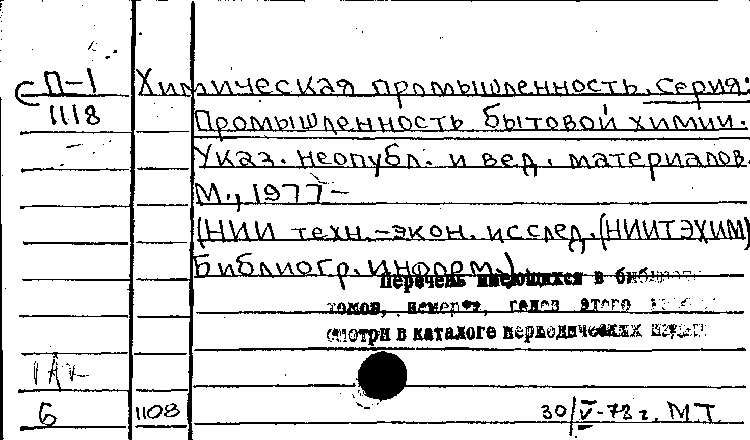 П-1 Химическая промышленность. Серия:
1118 Промышленность бытовой химии.
Указ. неопубл. и вед. материалов.
М., 1977-
(НИИ техн.-экон. исслед. (НИИТЭХИМ)
Библиогр. информ.)
Перечень имеющихся в
томов, номеров, годов этого
смотри в каталоге периодических
Б 1108 30/V-78 г. М.Т